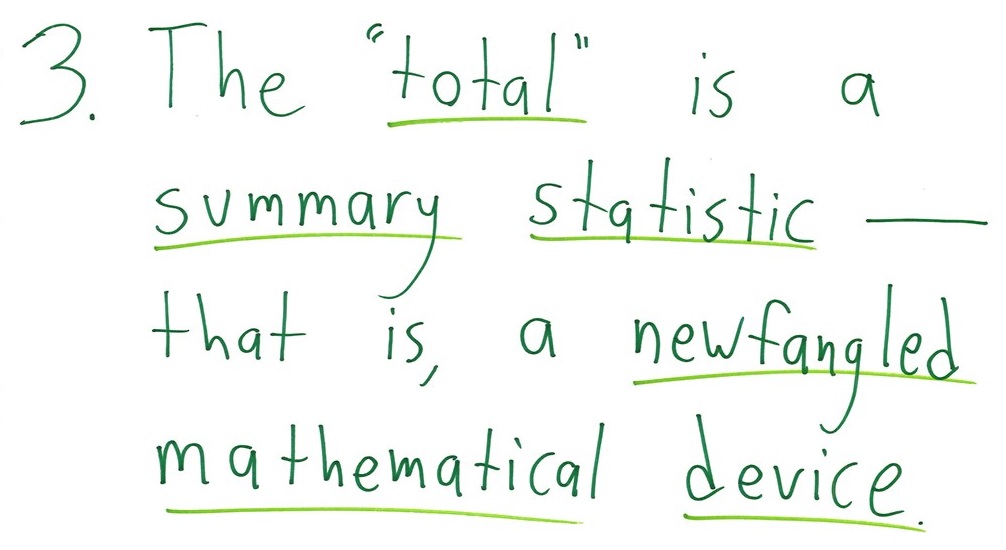 3. The "total" is a
summary statistic —
that is, a newfangled
mathematical device.